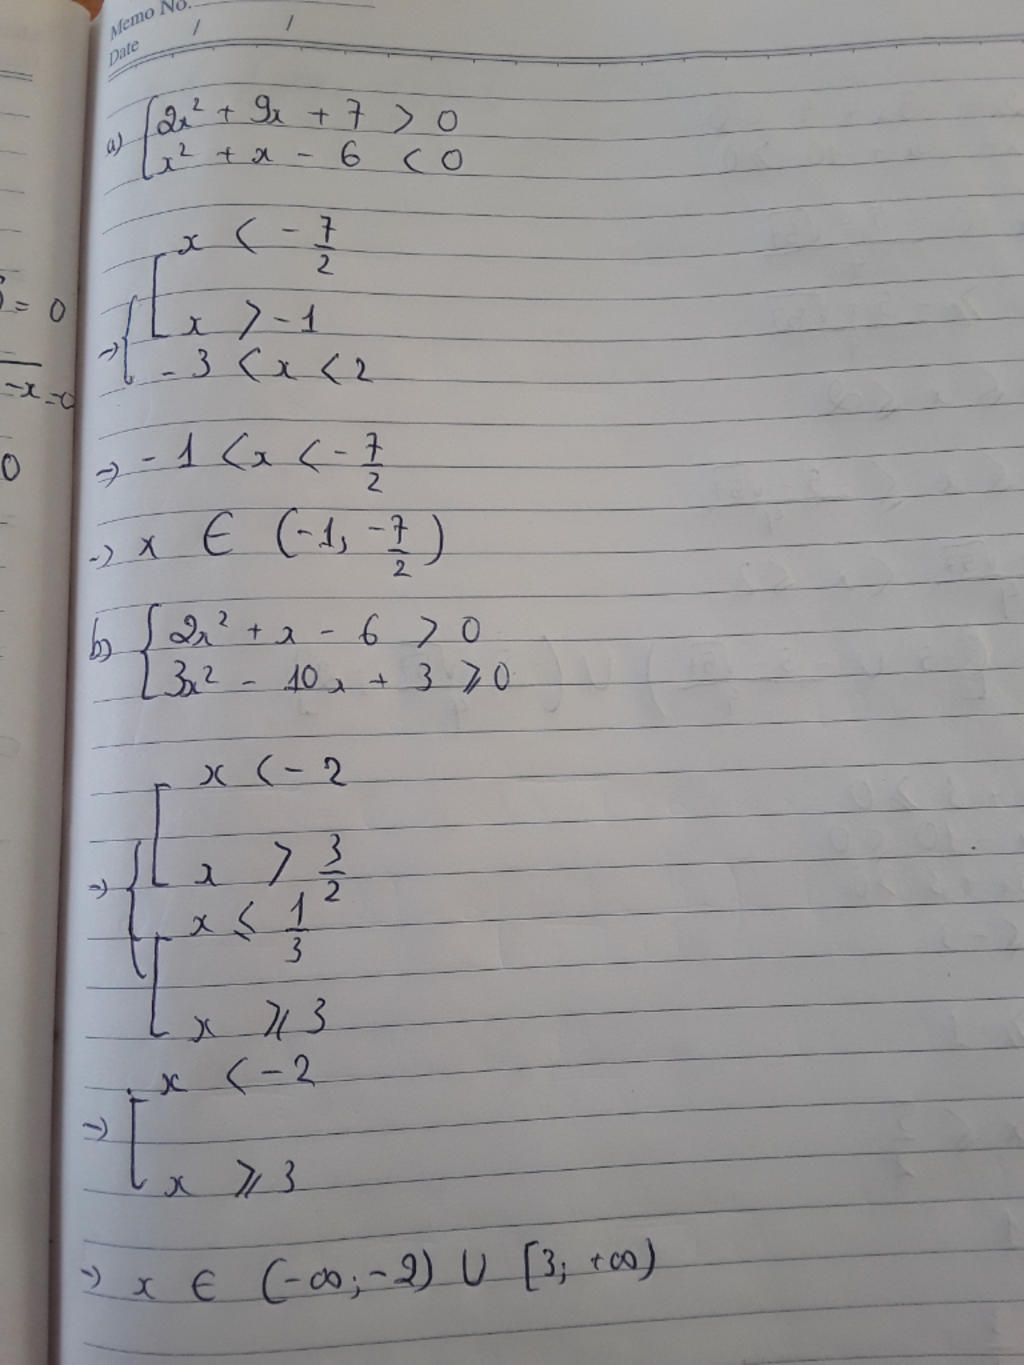 Memo No.
Date / /
a) { 2x² + 9x + 7 > 0
x² + x - 6 < 0
x < - 7/2
x > -1
=> { - 3 < x < 2
=> - 1 < x < - 7/2
=> x ∈ (-1, -7/2)
b) { 2x² + x - 6 > 0
3x² - 10x + 3 ⩾ 0
x < - 2
=> { [ x > 3/2
x ≤ 1/3
[ x ⩾ 3
x < - 2
=> [
x ⩾ 3
=> x ∈ (-∞; -2) ∪ [3; +∞)
= 0
-x=0
0